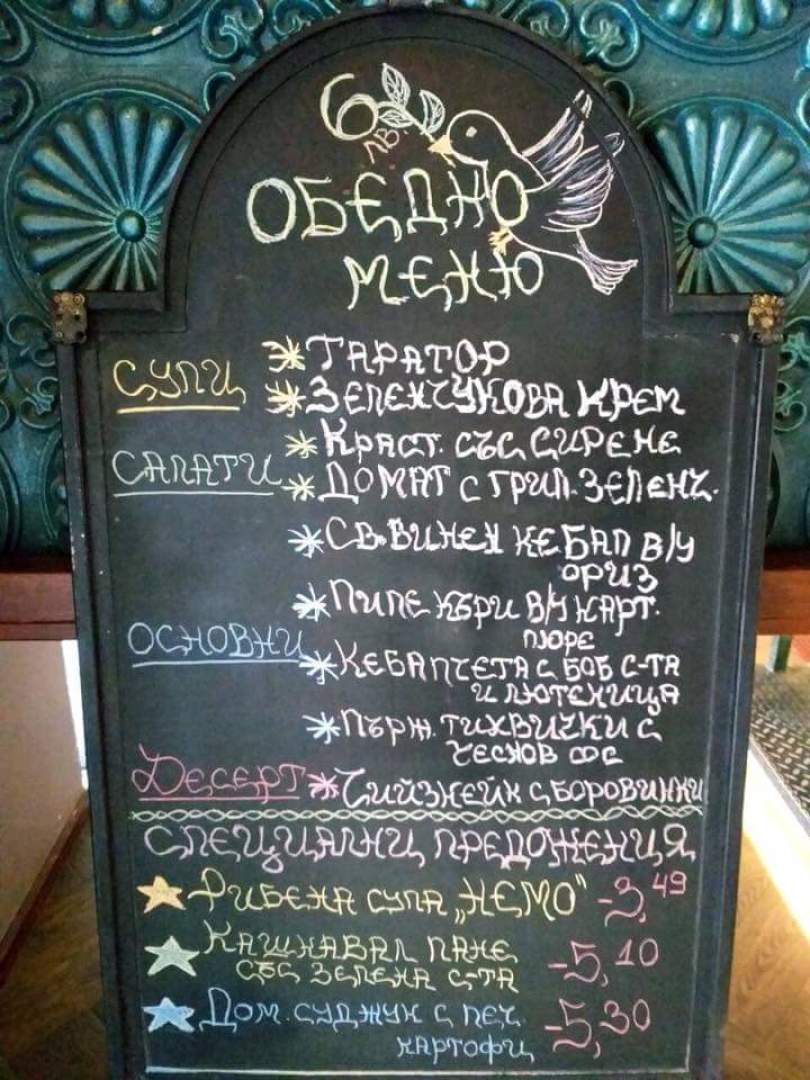 6 лв
ОБЕДНО
МЕНЮ
СУПИ
* ТАРАТОР
* ЗЕЛЕНЧУКОВА КРЕМ
САЛАТИ
* КРАСТ. СЪС СИРЕНЕ
* ДОМАТ С ГРИЛ. ЗЕЛЕНЧ.
ОСНОВНИ
* СВ. ВИНЕН КЕБАП В/У
ОРИЗ
* ПИЛЕ КЪРИ В/У КАРТ.
ПЮРЕ
* КЕБАПЧЕТА С БОБ С-ТА
И ЛЮТЕНИЦА
* ПЪРЖ. ТИКВИЧКИ С
ЧЕСНОВ СОС
ДЕСЕРТ
* ЧИЙЗКЕЙК С БОРОВИНКИ
СПЕЦИАЛНИ ПРЕДОЖЕНИЯ
РИБЕНА СУПА „НЕМО“ -3,49
КАШКАВАЛ ПАНЕ
СЪС ЗЕЛЕНА С-ТА -5,10
ДОМ. СУДЖУК С ПЕЧ.
КАРТОФИ -5,30